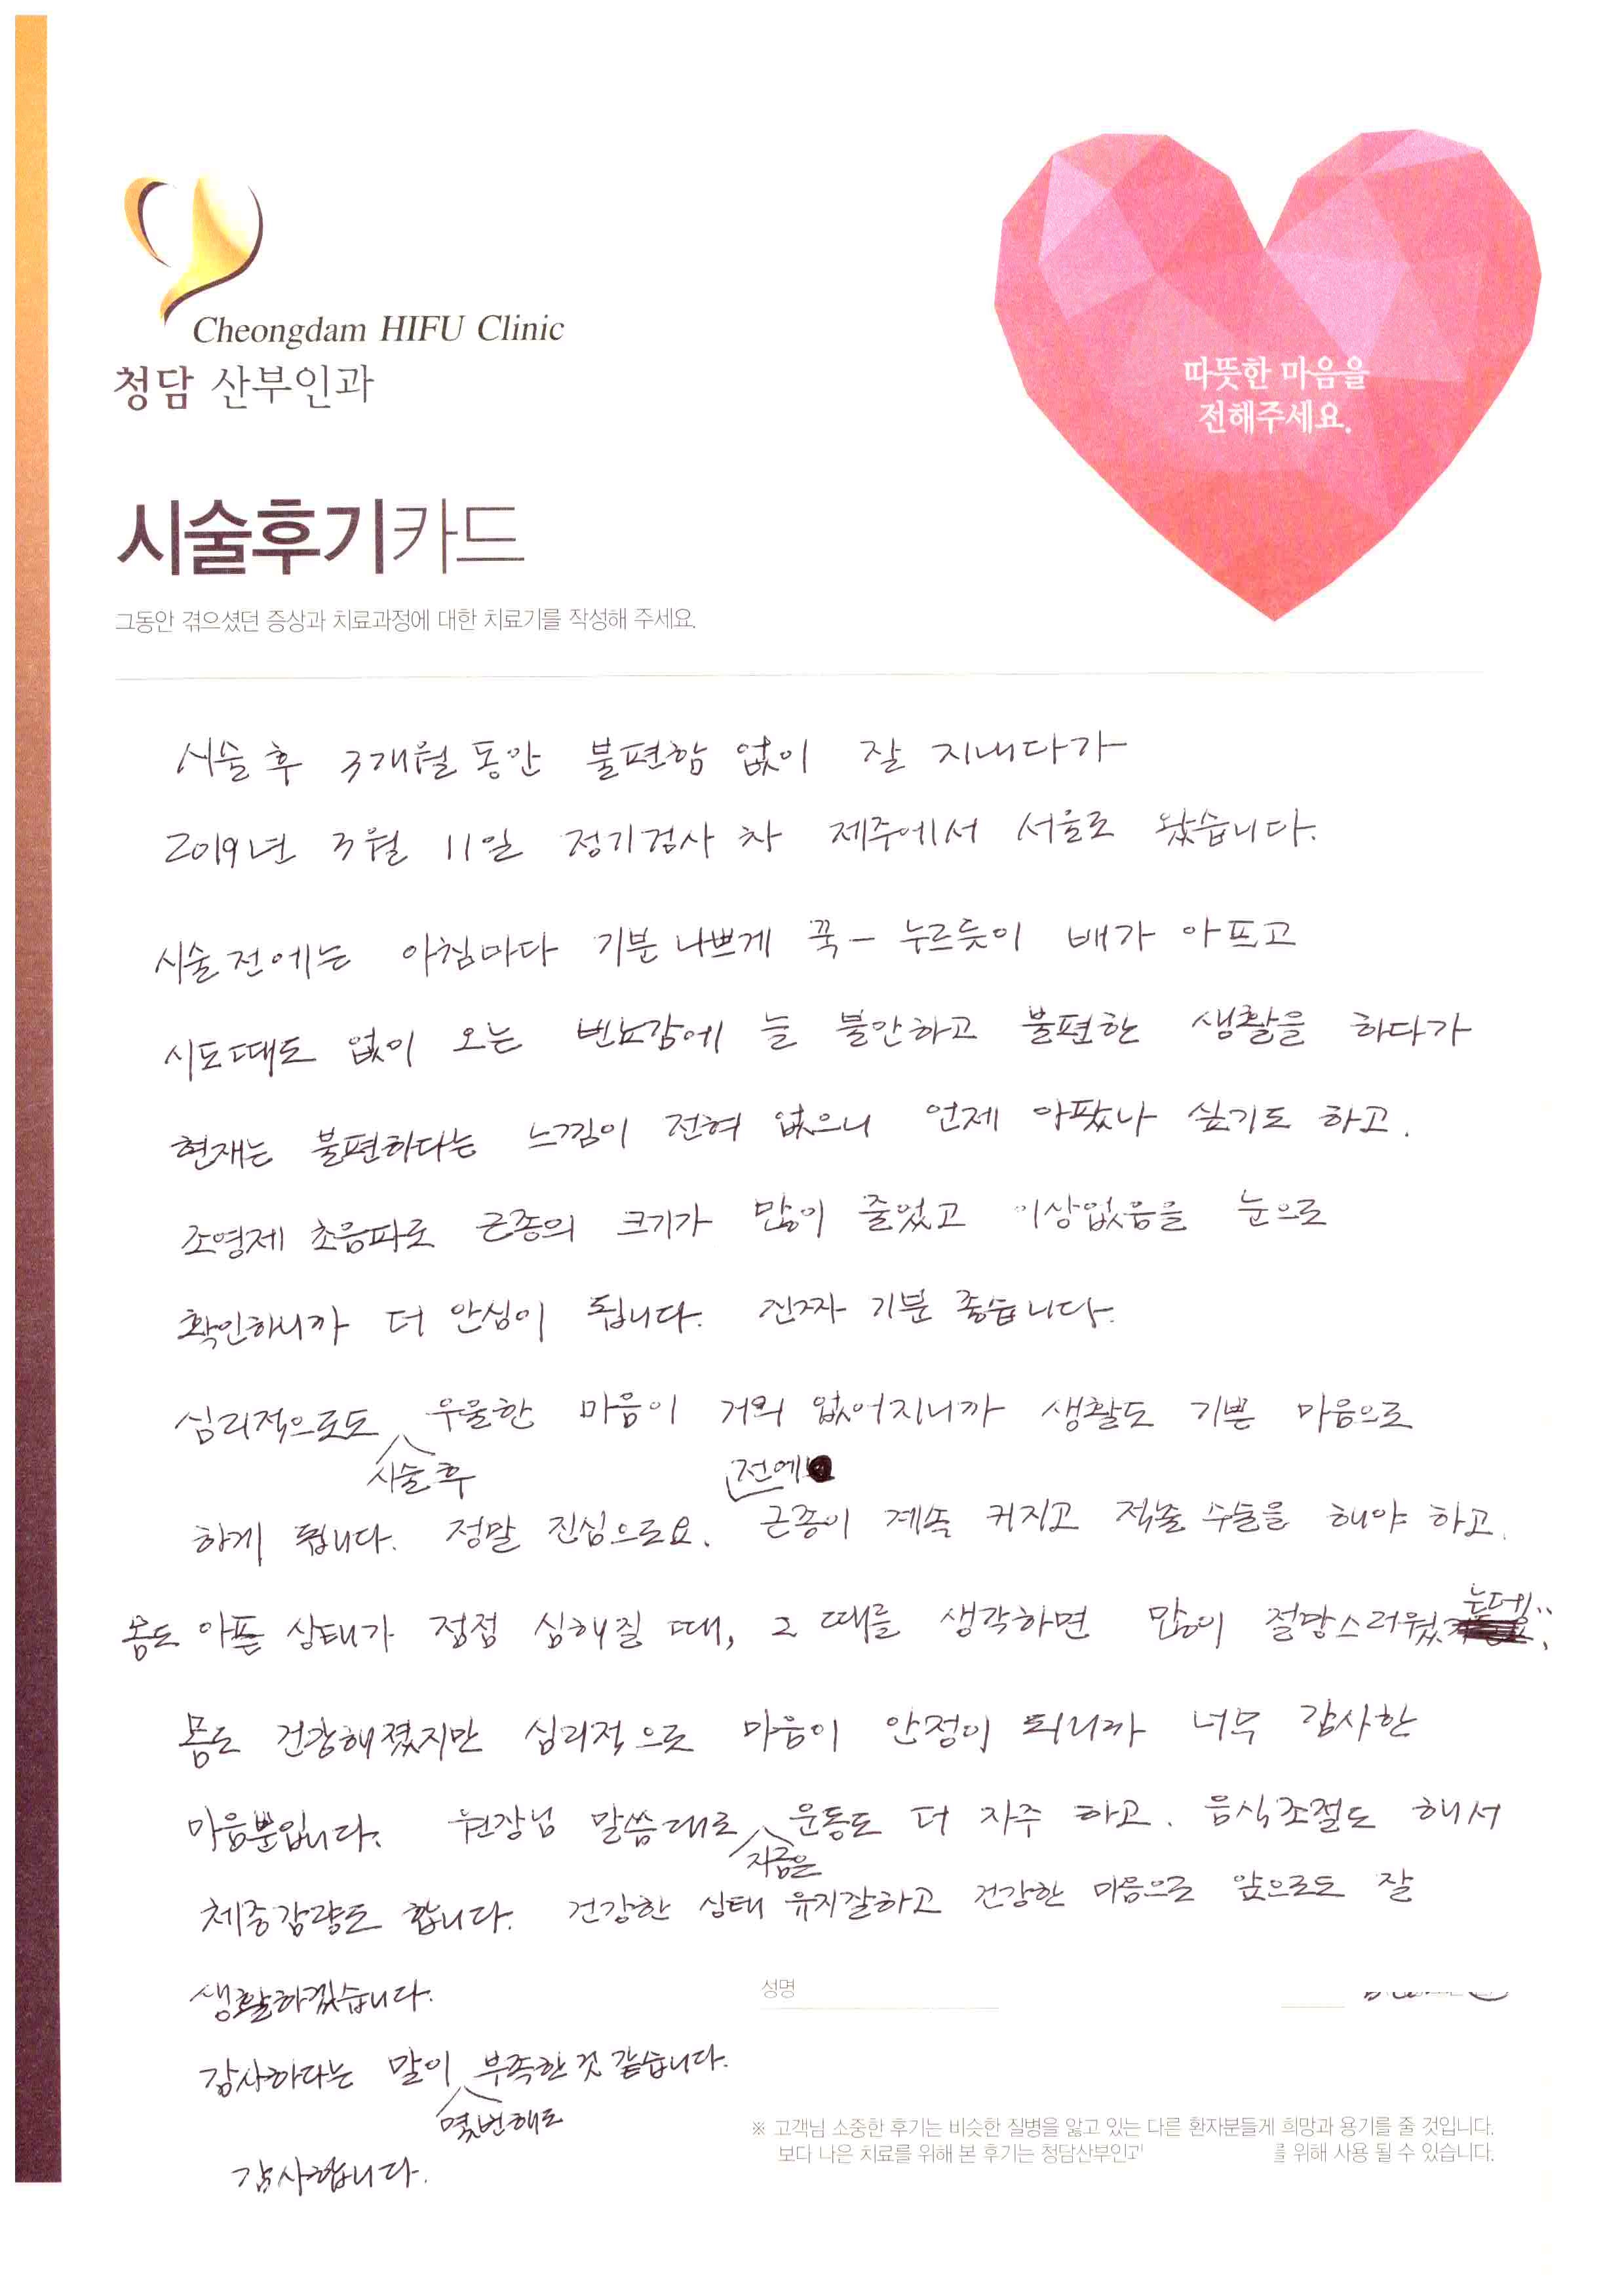 Cheongdam HIFU Clinic
청담 산부인과
따뜻한 마음을
전해주세요.
시술후기카드
그동안 겪으셨던 증상과 치료과정에 대한 치료기를 작성해 주세요.
시술 후 3개월 동안 불편함 없이 잘 지내다가
2019년 3월 11일 정기검사 차 제주에서 서울로 왔습니다.
시술 전에는 아침마다 기분 나쁘게 꾹- 누르듯이 배가 아프고
시도때도 없이 오는 변뇨감에 늘 불안하고 불편한 생활을 하다가
현재는 불편하다는 느낌이 전혀 없으니 언제 아팠나 싶기도 하고.
조영제 초음파로 근종의 크기가 많이 줄었고 이상없음을 눈으로
확인하니까 더 안심이 됩니다. 진짜 기분 좋습니다.
심리적으로도 시술 후 우울한 마음이 거의 없어지니까 생활도 기쁜 마음으로
하게 됩니다. 정말 진심으로요. 전에 근종이 계속 커지고 적출 수술을 해야 하고.
몸도 아픈 상태가 점점 심해질 때, 그 때를 생각하면 많이 절망스러웠는데..
몸도 건강해졌지만 심리적으로 마음이 안정이 되니까 너무 감사한
마음뿐입니다. 원장님 말씀대로 지금은 운동도 더 자주 하고. 음식조절도 해서
체중감량도 합니다. 건강한 상태 유지잘하고 건강한 마음으로 앞으로도 잘
생활하겠습니다.
성명
감사하다는 말이 몇번해도 부족한 것 같습니다.
감사합니다.
※ 고객님 소중한 후기는 비슷한 질병을 앓고 있는 다른 환자분들게 희망과 용기를 줄 것입니다.
보다 나은 치료를 위해 본 후기는 청담산부인과 를 위해 사용 될 수 있습니다.